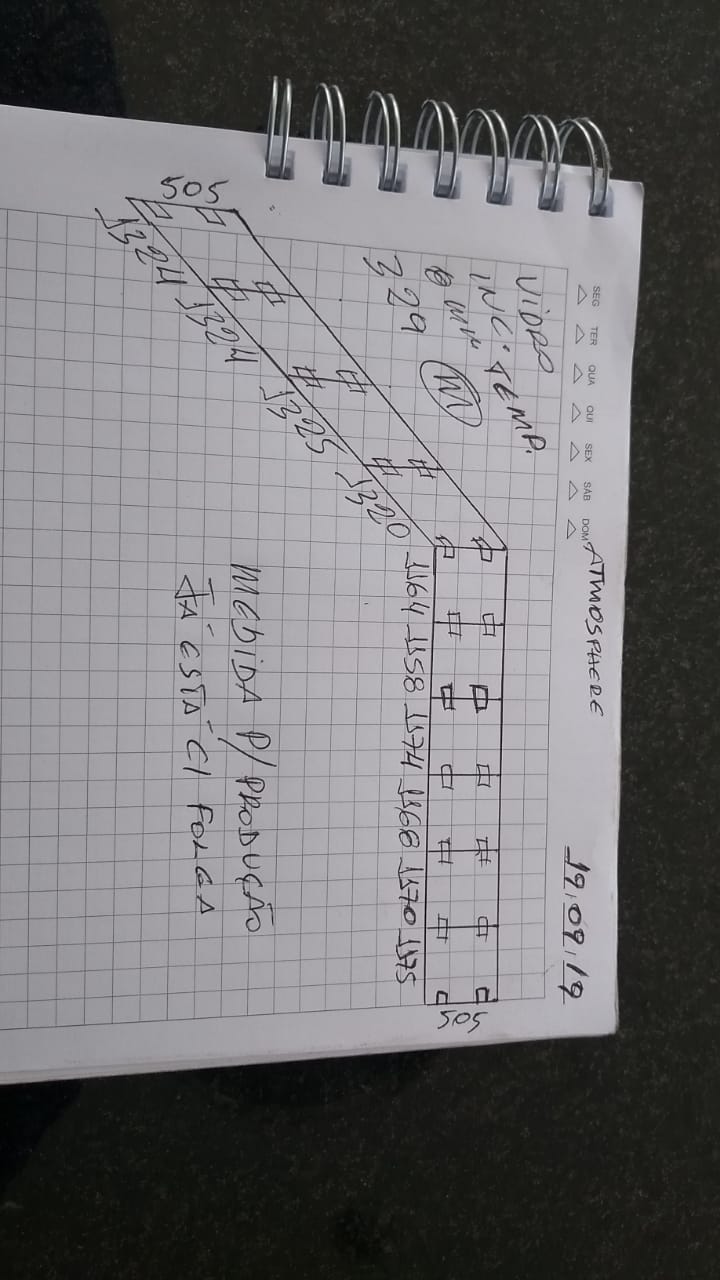 SEG TER QUA QUI SEX SAB DOM
ATMOSPHERE 19.09.19
VIDRO
INC. TEMP.
8 MM M
329
505
1164 1158 1174 1168 1170 1175
505
1324 1324 1325 1320
MEDIDA P/ PRODUÇÃO
JÁ ESTÁ C/ FOLGA